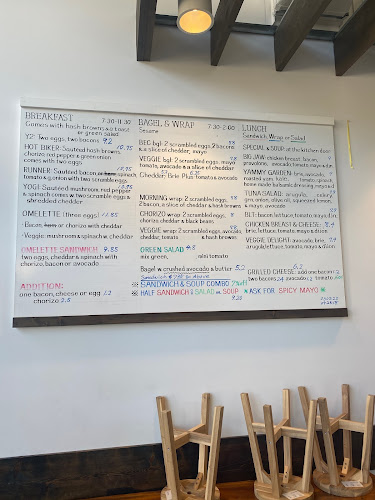 BREAKFAST 7:30-11:30
Comes with hash browns & a toast
or green salad
Y2: Two eggs, two bacons 9.2
HOT BIKER: Sauteed hash browns, 10.75
chorizo, red pepper & green onion
comes with two eggs
RUNNER: Sauteed bacon or ham spinach
tomato & g.onion with two scramble eggs
YOGI: Sauteed mushroom, red pepper
& spinach comes w two scramble eggs &
shredded cheddar
OMELETTE (three eggs) 11.85
-Bacon, or chorizo w onion & cheddar
-Veggie: mushroom & spinach w cheddar
OMELETTE SANDWICH 9.85
two eggs, cheddar & spinach with
chorizo, bacon or avocado
ADDITION:
one bacon, cheese or egg 1.2
chorizo 2.5
BAGEL & WRAP 7:30-2:00
Sesame
BEC bgl: 2 scrambled eggs, 2 bacons
& a slice of cheddar, mayo
VEGGIE bgl: 2 scrambled eggs, mayo
tomato, avocado & a slice of cheddar
Cheddar: Brie Plus: tomato & avocado
MORNING wrap: 2 scrambled eggs,
2 bacon, a slice of cheddar & hash brown
CHORIZO wrap: 2 scrambled eggs,
chorizo, cheddar & black beans
VEGGIE wrap: 2 scrambled eggs, avocado
cheddar, tomato & hash brown
GREEN SALAD 4.8
mix green, mini tomato
Bagel w crushed avocado & butter
SANDWICH & SOUP COMBO
HALF SANDWICH & SALAD or SOUP
LUNCH
Sandwich, Wrap or Salad
SPECIAL & SOUP at the kitchen door
BIG JAW: chicken breast, bacon,
provolone, avocado, tomato, mayo & dijon
YAMMY GARDEN: brie, avocado,
roasted yam, tomato, spinach
home made balsamic dressing, mayo
TUNA SALAD: arugula, celery
gr. onion, olive oil, squeezed lemon
& mayo, avocado
BLT: bacon, lettuce, tomato, mayo & dijon
CHICKEN BREAST & CHEESE:
brie, lettuce, tomato, mayo & dijon
VEGGIE DELIGHT: avocado, brie,
arugula, lettuce, tomato, mayo & dijon
GRILLED CHEESE: add one bacon
two bacons tomato
ASK FOR SPICY-MAYO